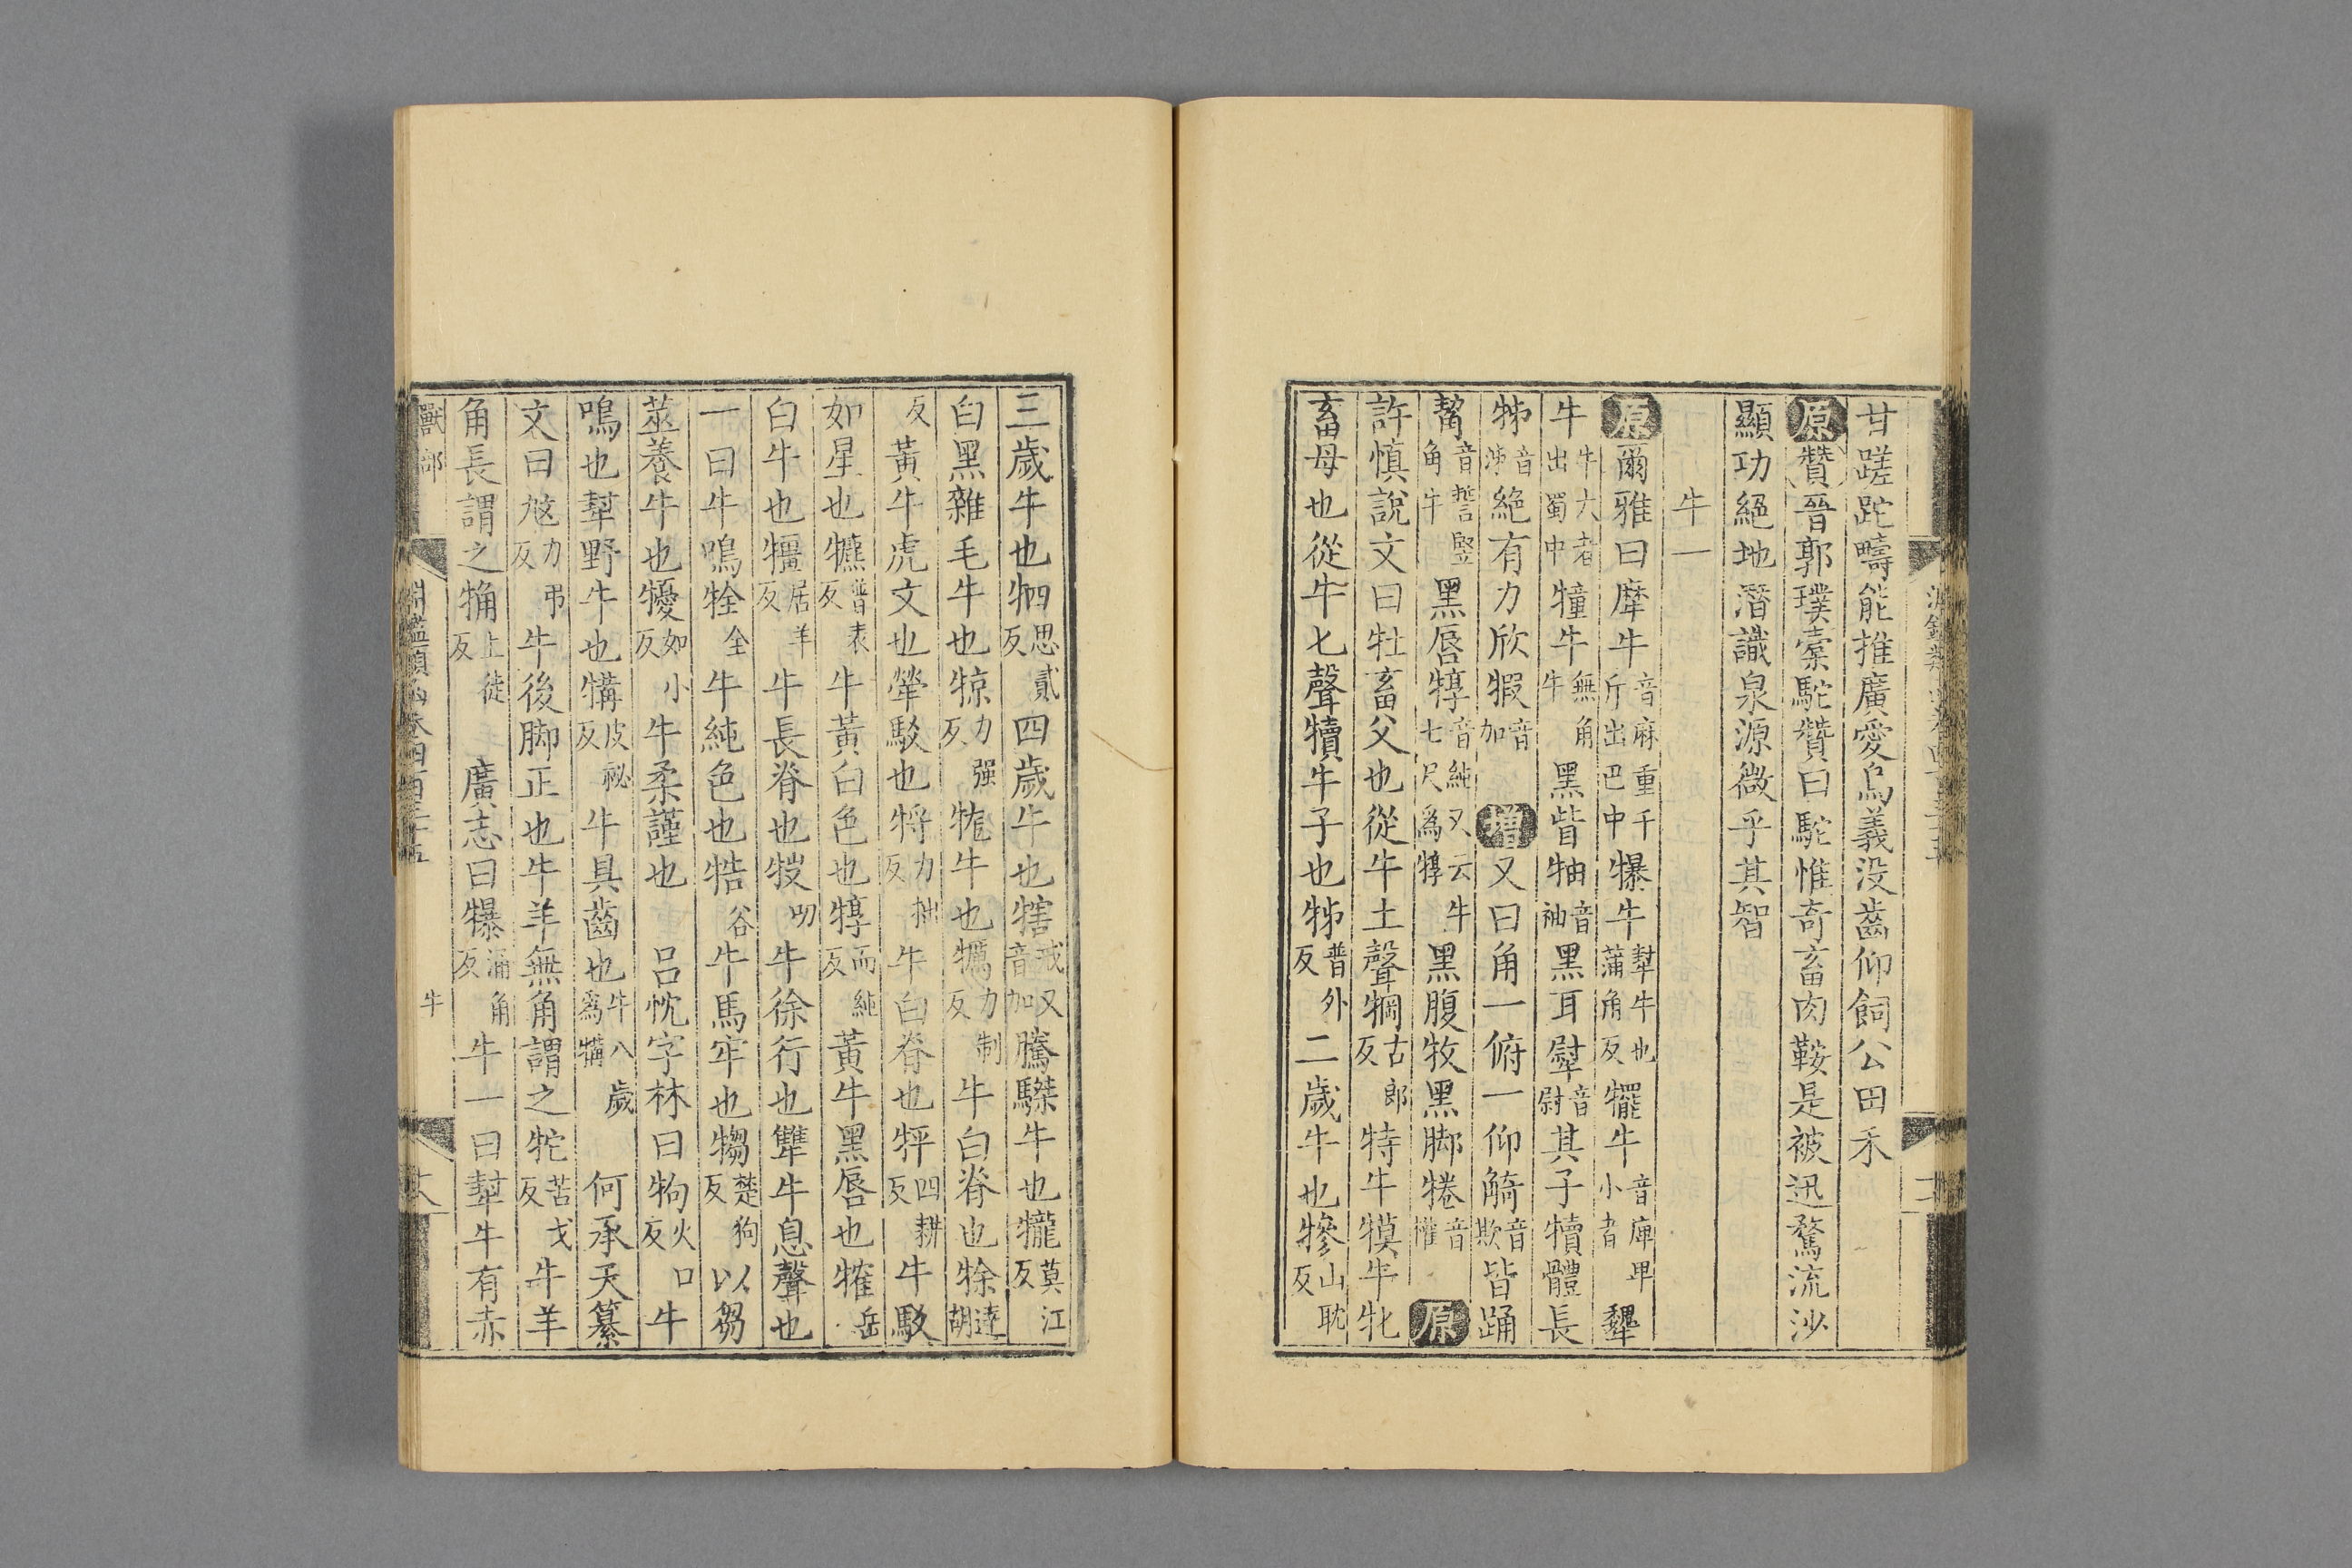 甘蹉跎疇能推廣愛烏義没齒仰飼公田禾
原贊晉郭璞槖駝贊曰駝惟奇畜肉鞍是被迅騖流沙
顯功絕地潛識泉源微乎其智
牛一
原爾雅曰犘牛音麻重千斤出巴中犦牛犎牛也蒲角反犤牛音庳卑小者犩
牛牛大者出蜀中犝牛無角牛黑眥牰音袖黑耳犚音尉其子犢體長
牬音沛絕有力欣犌音加增又曰角一俯一仰觭音欺皆踊
觢音誓豎角牛黑唇犉音純又云牛七尺爲犉黑腹牧黑脚犈音權原
許慎說文曰牡畜父也從牛土聲犅古郎反特牛犢牛牝
畜母也從牛匕聲犢牛子也牬普外反二歲牛也犙山耽反
三歲牛也牭思貳反四歲牛也犗戒又音加騰騬牛也牻莫江反
白黑雜毛牛也㹁力强反牻牛也犡力制反牛白脊也㻌達胡
反黃牛虎文也犖駁也㸹力拙反牛白脊也㹚四耕反牛駁
如星也犥普表反牛黃白色也犉而純反黃牛黑唇也㹊岳
白牛也犟居羊反牛長脊也㹎叨牛徐行也犨牛息聲也
一曰牛鳴牷全牛純色也牿谷牛馬牢也犓楚狗反以芻
莝養牛也㹛如小反牛柔謹也呂忱字林曰㸸火口反牛
鳴也犎野牛也犕皮祕反牛具齒也牛八歲爲犕何承天纂
文曰㹇力弔反牛後脚正也牛羊無角謂之㸰苦戈反牛羊
角長謂之㹌上徒反廣志曰犦蒲角反牛一曰犎牛有赤
獸部 淵鑑類函卷四百三十五 牛